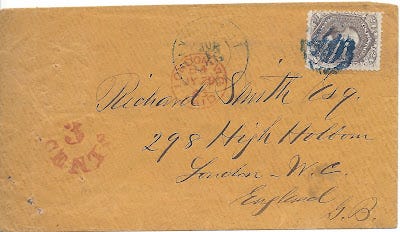 3
CENTS
LONDON
Richard Smith Esq.
298 High Holborn
London - W. C.
England
G. B.